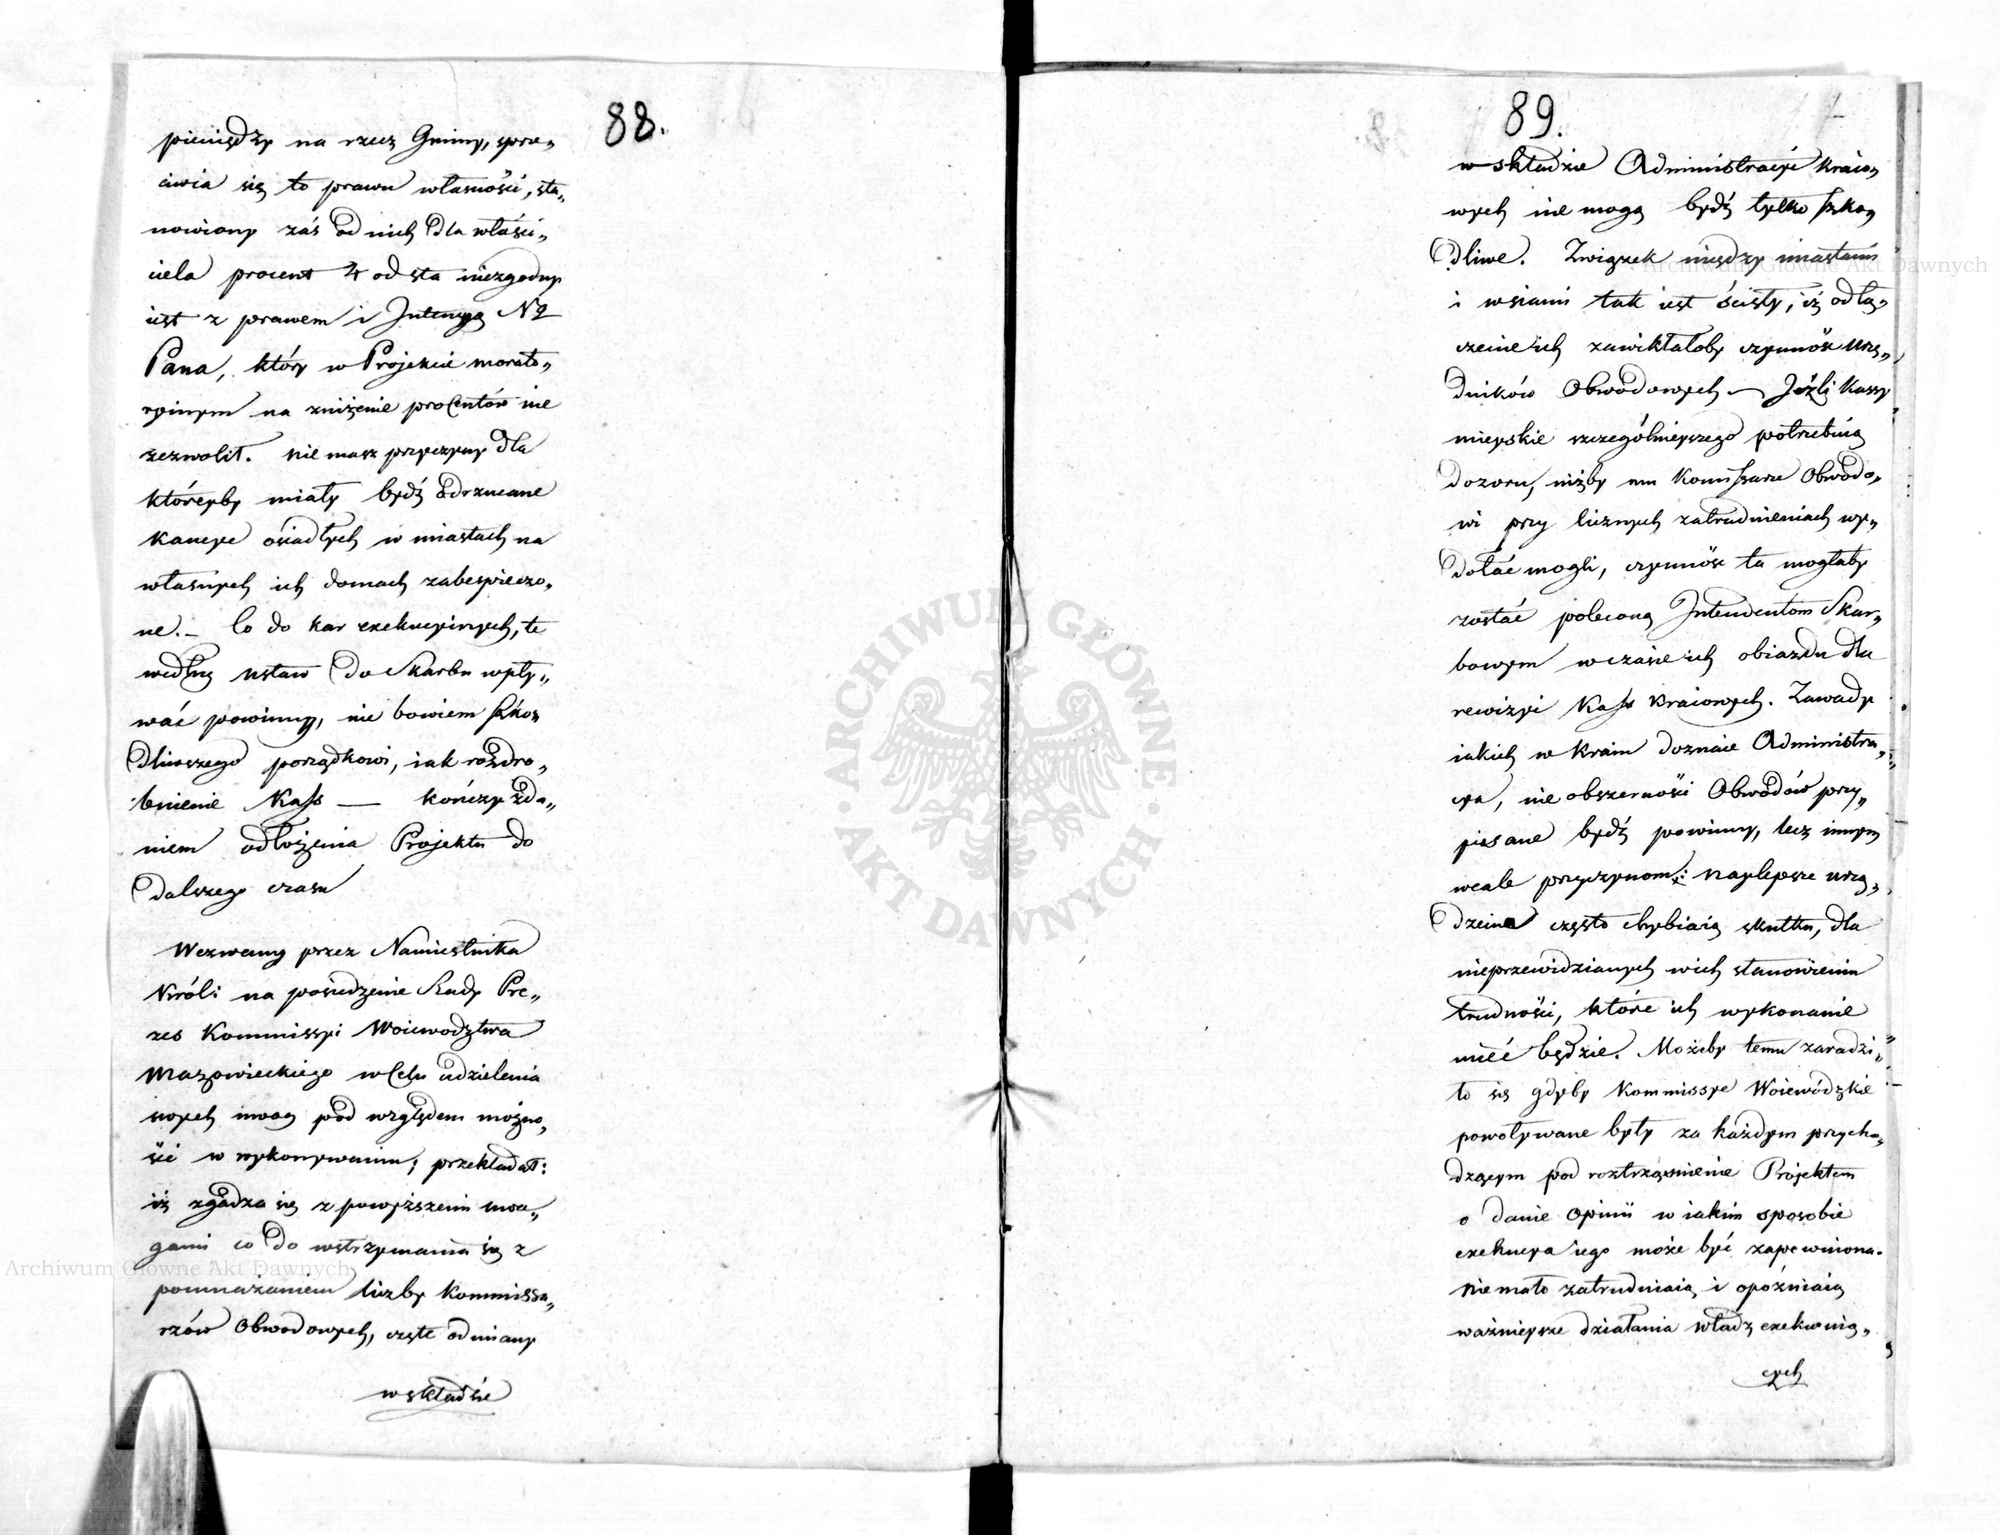 88.
pieniędzy na rzecz Gminy, sprze„
ciwia się to prawu własności, sta„
nowiony zaś od nich dla właści„
ciela procent 4 od sta niezgodny
iest z prawem i Intencyą N
Pana, który w Projekcie morato„
ryinym na zniżenie procentów nie
zezwolił. Nie masz przyczyny dla
któreyby miały bydź odrzucane
kaucye osiadłych w miastach na
własnych ich domach zabespieczo„
ne._ Co do kar exekucyinych, te
według ustaw do Skarbu wpły„
wać powinny, nic bowiem szko„
dliwszego porządkowi, iak rozdro„
bnienie Kass — kończy żda„
niem odłożenia Projektu do
dalszego czasu
Wezwany przez Namiestnika
Króls: na posiedzenie Rady Pre„
zes Kommissyi Woiewództwa
Mazowieckiego w Celu udzielenia
swych uwag pod względem możno„
ści w wykonywaniu; przekładał:
iż zgadza się z powyższemi uwa„
gami co do wstrzymania się z
pomnażaniem liczby Kommissa„
rzów Obwodowych, częste odmiany
w składzie
89.
w składzie Administracyi kraio„
wych nie mogą bydź tylko szko„
dliwe. Związek między miastami
i wsiami tak iest ścisły, iż odłą„
czenie ich zawikłałoby czynność urzę„
dników Obwodowych — Jeżli kassy
mieyskie szczególnieyszego potrzebuią
dozoru, niżby mu Komissarze Obwodo„
wi przy licznych zatrudnieniach wy„
dołać mogli, czynność ta mogłaby
zostać poleconą Intendentom Skar„
bowym w czasie ich obiazdu dla
rewizyi Kass kraiowych. Zawady
iakich w kraiu doznaie Administra„
cya, nie obszerności Obwodów przy„
pisane bydź powinny, lecz innym
wcale przyczynom: Naylepsze urzą„
dzenia często chybiaią skutku, dla
nieprzewidzianych w ich stanowieniu
trudności, które ich wykonanie
mieć będzie. Możeby temu zaradzi„
ło się gdyby Kommissye Woiewódzkie
powoływane były za każdym przycho„
dzącym pod roztrząśnienie Projektem
o danie Opinii w iakim sposobie
exekucya iego może być zapewniona.
Nie mało zatrudniaią i opóźniaią
ważnieysze działania władz exekwuią„
cych
ARCHIWUM GŁÓWNE · AKT DAWNYCH ·
Archiwum Główne Akt Dawnych
Archiwum Główne Akt Dawnych